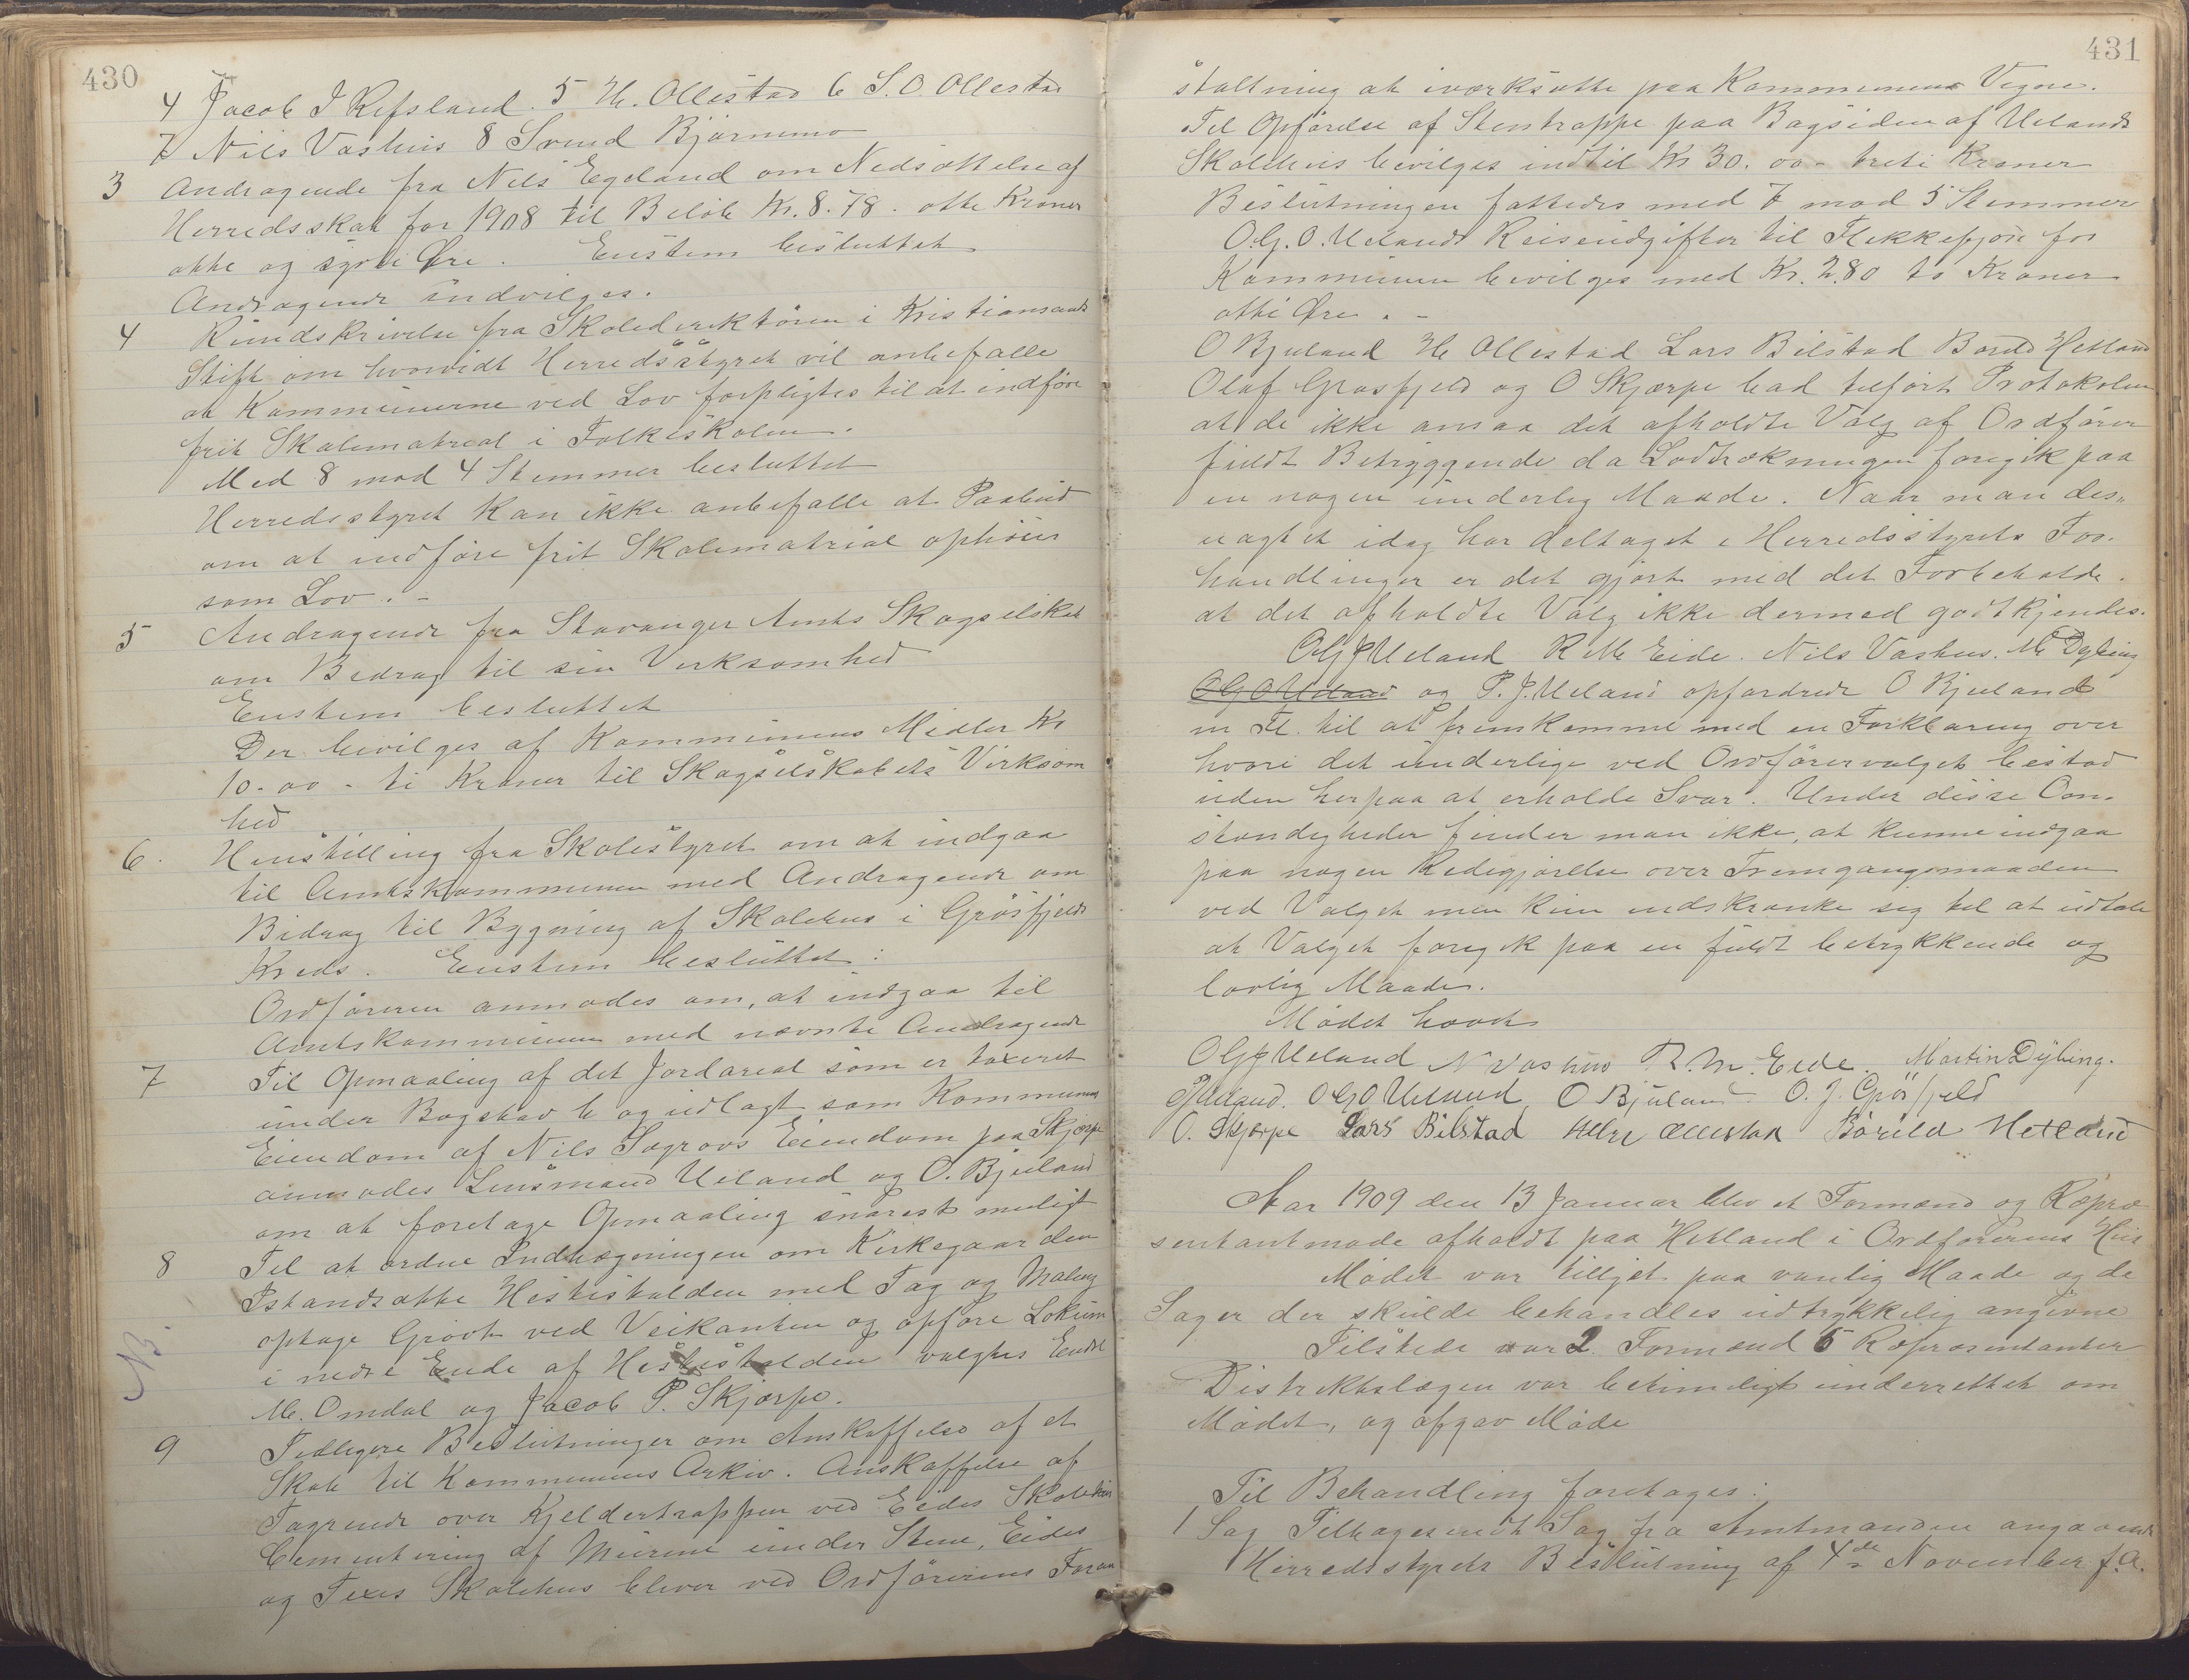 430
4 Jacob I Refsland. 5 H. Ollestad 6 S. O. Ollestad
7 Nils Vashus 8 Svend Bjørnemo
3 Andragende fra Nils Egeland om Nedsættelse af
Herredsskat for 1908 til Beløb Kr. 8.78. otte Kroner
otte og sytti Øre. Enstem besluttet
Andragende indvilges.
4 Rundskrivelse fra Skoledirektøren i Kristiansands
Stift om hvorvidt Herredsstyret vil anbefalle
at Kommunerne ved Lov forpligtes til at indføre
frit Skolematreal i Folkeskolen.
Med 8 mod 4 Stemmer besluttet
Herredsstyret kan ikke anbefalle at Paabud
om at indføre frit Skolematrial ophøies
som Lov. -
5 Andragende fra Stavanger Amts Skogselskab
om Bedrag til sin Verksomhed
Enstem besluttet
Der bevilges af Kommunens Midler Kr
10.00 - ti Kroner til Skogselskabets Virksom
hed
6. Henstilling fra Skolestyret om at indgaa
til Amtskommunen med Andragende om
Bidrag til Bygning af Skolehus i Grøsfjeld
Kreds. Enstem besluttet:
Ordføreren anmodes om, at indgaa til
Amtskommunen med nævnte Andragende
7 Til Opmaaling af det Jordareal som er taxeret
under Bogstav b og udlagt som Kommunens
Eiendom af Nils Sagrovs Eiendom paa Skjerpe
anmodes Lensmand Ueland og O. Bjuland
om at foretage Opmaaling snarest muligt
8 Til at ordne Indhægningen om Kirkegaarden
Istandsætte Hestestalden med Tag og Maling
optage Grøvt ved Veikanten og opføre Lokum
NB.
i nedre Ende af Hestestalden valgtes Endre
M. Omdal og Jacob P. Skjærpe.
9 Tidligere Beslutninger om Anskaffelse af et
Skab til Kommunens Arkiv. Anskaffelse af
Tagrende over Kjeldertrappen ved Eides Skolehus
Cementering af Murene under Stene, Eides
og Texes Skolehus blever ved Ordførerens Foran
431
staltning at iværksætte paa Kommunens Vegne.
Til Opførelse af Stentrappe paa Bagsiden af Uelands
Skolehus bevilges indtil Kr 30.00 - treti Kroner
Beslutningen fattedes med 7 mod 5 Stemmer
O.G.O. Uelands Reiseudgifter til Flekkefjord for
Kommunen bevilges med Kr. 2.80 to Kroner
otti Øre. -
O Bjuland H Ollestad Lars Bilstad Boruld Hetland
Olaf Grøsfjeld og O Skjærpe bad tilført Protokolen
at de ikke ansaa det afholdte Valg af Ordfører
fuldt Betryggende da Lodtrækningen foregik paa
en nogen underlig Maade. Naar man des-
uagtet idag har deltaget i Herredsstyrets For-
handlinger er det gjørt med det Forbeholde.
at det afholdte Valg ikke dermed godtkjendes.
OGJUeland R M Eide. Nils Vashus. M Dybing
OGOUeland og P. J. Ueland opfordrede O Bjuland
m Fl. til at fremkomme med en Forklaring over
hvori det underlige ved Ordførervalget bestod
uden herpaa at erholde Svar. Under disse Om-
stændigheder finder man ikke, at kunne indgaa
paa nogen Redegjørelse over Fremgangsmaaden
ved Valget men kun indskrænke sig til at udtale
at Valget foregik paa en fuldt betrykkende og
lovlig Maade.
Mødet hævet
OGJUeland N Vashus R. M. Eide. Martin Dybing.
PJUeland. OGOUeland O Bjuland O. J. Grøsfjeld
O. Skjerpe Lars Bilstad Ollestad Boruld Hetland
Aar 1909 den 13 Januar blev et Formænd og Repræ
sentantmøde afholdt paa Hetland i Ordførerens Hus
Mødet var tillyst paa vanlig Maade og de
Sager der skulde behandles udtrykkelig angivne
Tilstede var 2 Formænd 6 Repræsentanter
Distriktslægen var betimeligt underrettet om
Mødet, og afgav Møde
Til Behandling foretoges:
1 Sag Tilbagesendt Sag fra Amtmanden angaaende
Herredsstyrets Beslutning af 4de November f. A.